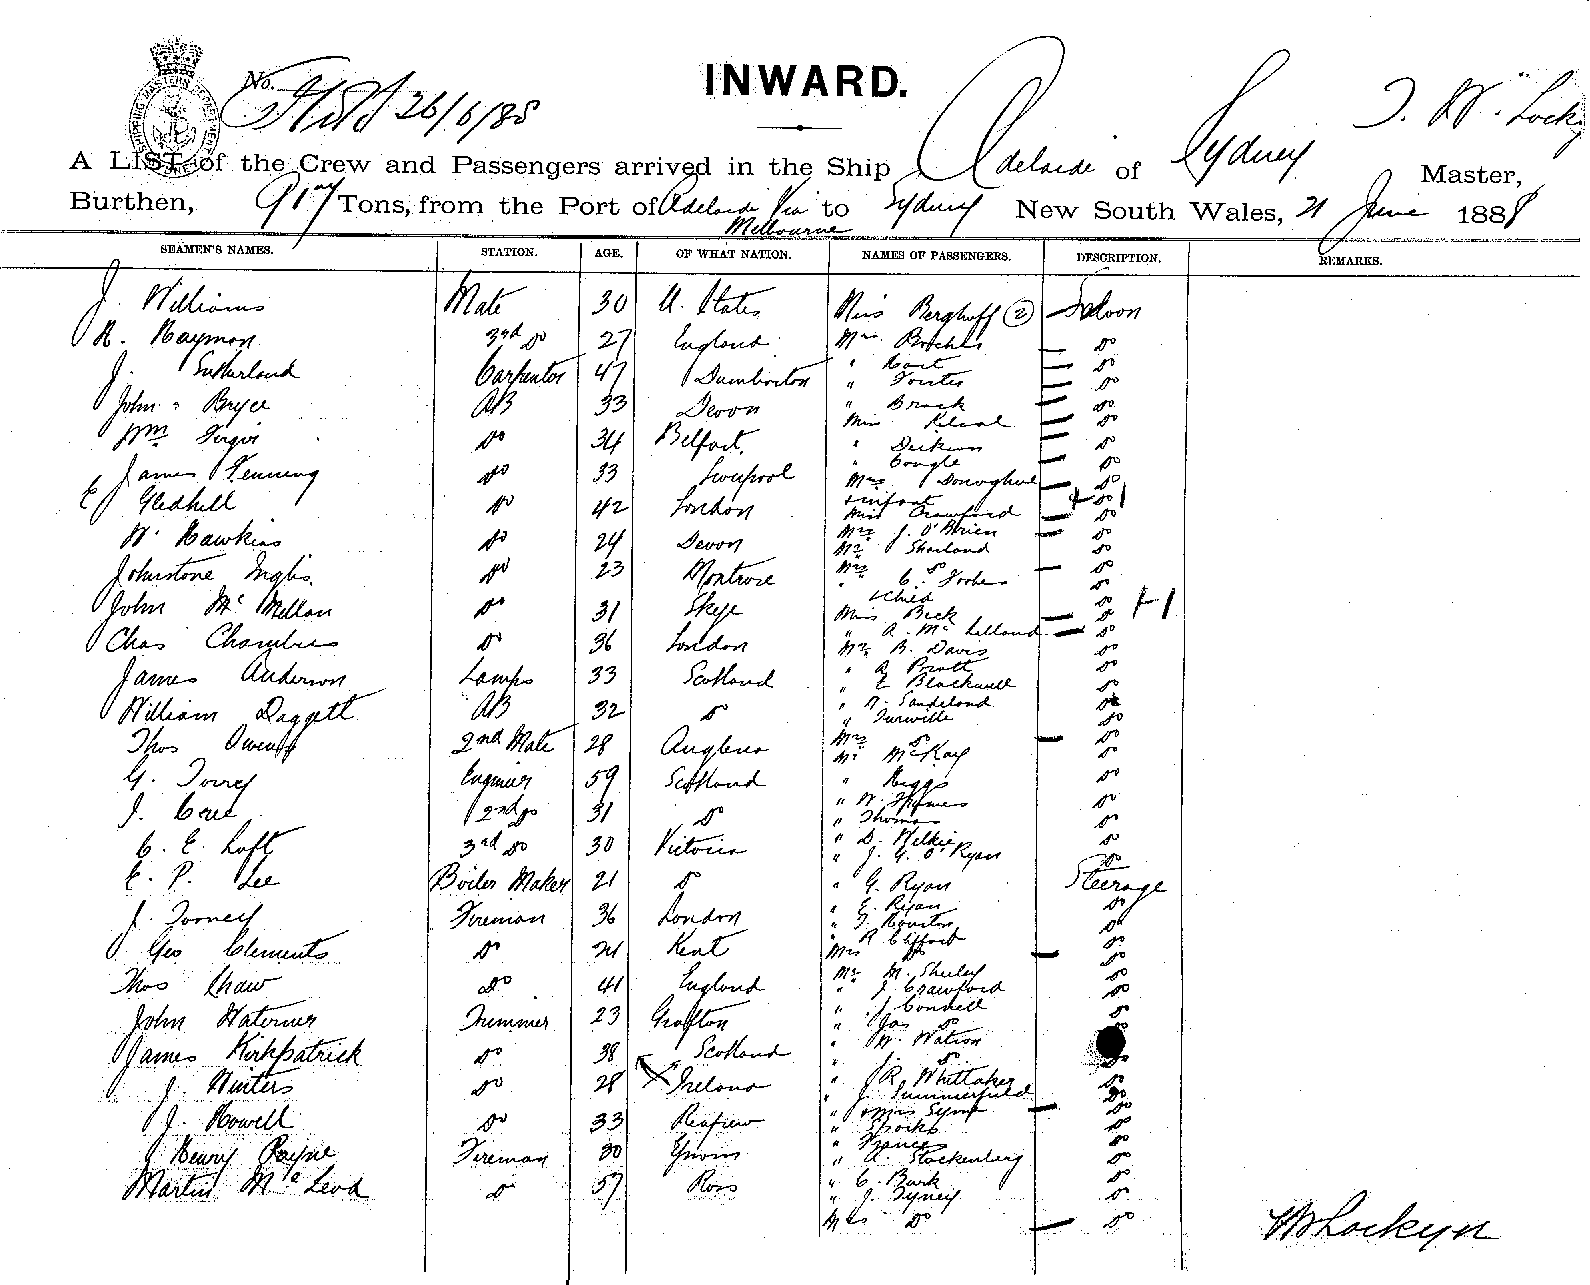 INWARD.
No.
26/6/88
A LIST of the Crew and Passengers arrived in the Ship Adelaide of Sydney T. W. Lock
Master,
Burthen, 917 Tons, from the Port of Adelaide Via to Sydney New South Wales, 21 June 1888
Melbourne
SEAMEN'S NAMES. STATION. AGE. OF WHAT NATION. NAMES OF PASSENGERS. DESCRIPTION. REMARKS.
J. Williams Mate 30 U. States Miss Berghoff (2) Saloon
R. Haymon 3rd Do 27 England Mrs Do
J. Sutherland Carpenter 47 Dumbarton " Do
" Forster Do
John Bryce AB 33 Devon " Brack Do
Miss Do
Wm Do 34 Belfast " Do
" Do
James Fenning Do 33 Liverpool Mrs Donoghue Do
E Gledhill Do 42 London + infant Do
Miss Crawford Do
W. Hawkins Do 24 Devon Mrs J. O'Brien Do
Mr Sharland Do
Johnstone Inglis Do 23 Montrose Mrs Do Do
" C. Forbes Do
John McMillan Do 31 Skye + child Do
Miss Beck Do
Chas Chambers Do 36 London " A. McLelland Do
Mr B. Davis Do
James Anderson Lamps 33 Scotland " A Pratt Do
" E Blackwell Do
William Daggett AB 32 Do " W. Sandeland Do
" Turville Do
Thos Owens 2nd Mate 28 Mrs Do Do
Mr McKay Do
G. Torrey Engineer 59 Scotland " Riggs Do
" W. Do
J. 2nd Do 31 Do " Thomas Do
C. E. Loft 3rd Do 30 Victoria " D. Wilkie Do
" J. G. O'Ryan Do
E. P. Lee Boiler Maker 21 Do " G. Ryan Steerage
" E. Ryan Do
J. Fireman 36 London " T. Houston Do
" R Clifford Do
Geo Clements Do 21 Kent Mrs Do Do
Thos Shaw Do 41 England Mr M. Do
" J Crawford Do
John Waterner Trimmer 23 Grafton " J Connell Do
" Jas Do
James Kirkpatrick Do 38 Scotland " W. Watson
" Do
J. Winters Do 28 Ireland " J R. Whittaker Do
" J. Summerfield Do
J. Howell Do 33 Renfrew " Miss Syme Do
" Do
Henry Payne Fireman 30 " Frances Do
" A. Stockenberg Do
Martin McLeod Do 57 Ross " C. Burk Do
" J. Do
Mrs Do Do
W Lockyer